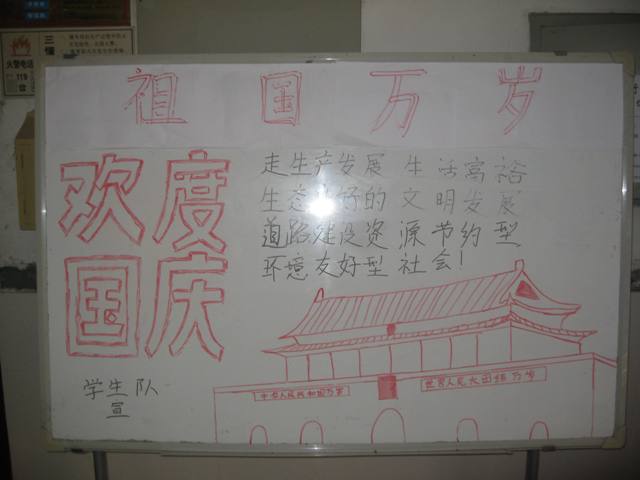 祖国万岁
欢度
国庆
走生产发展 生活富裕
生态良好的文明发展
道路建设资源节约型
环境友好型社会！
中华人民共和国万岁
世界人民大团结万岁
学生队
宣
火警电话
119
三懂